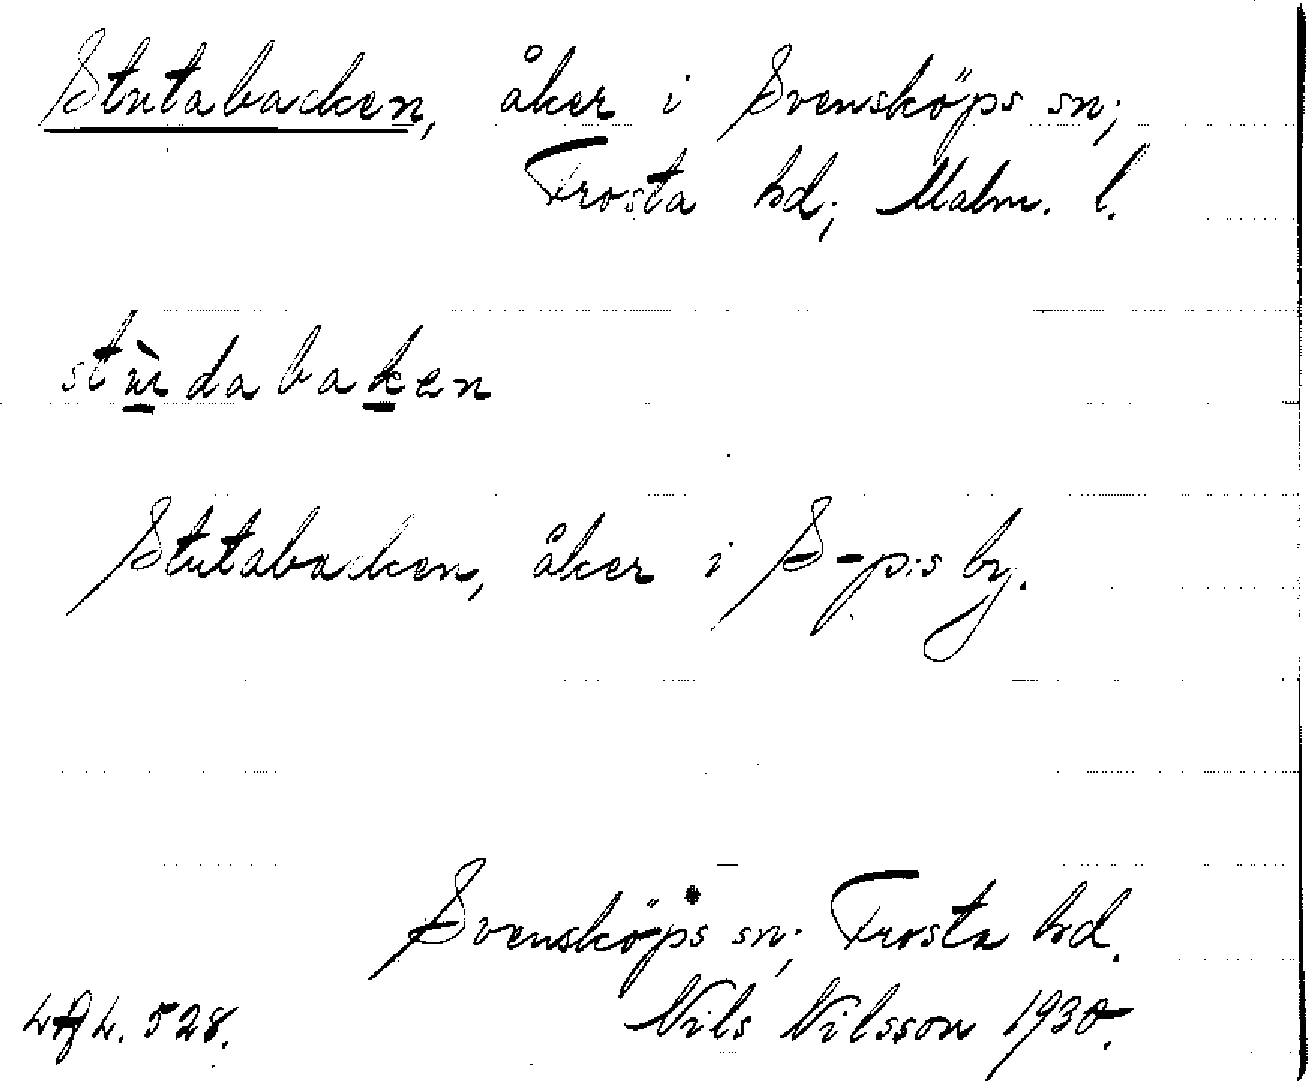 Stutabacken, åker i Svensköps sn;
Frosta hd; Malm. l.
stùdabaken
Stutabacken, åker i S-p:s by.
Svensköps sn; Frosta hd.
Nils Nilsson 1930.
528.